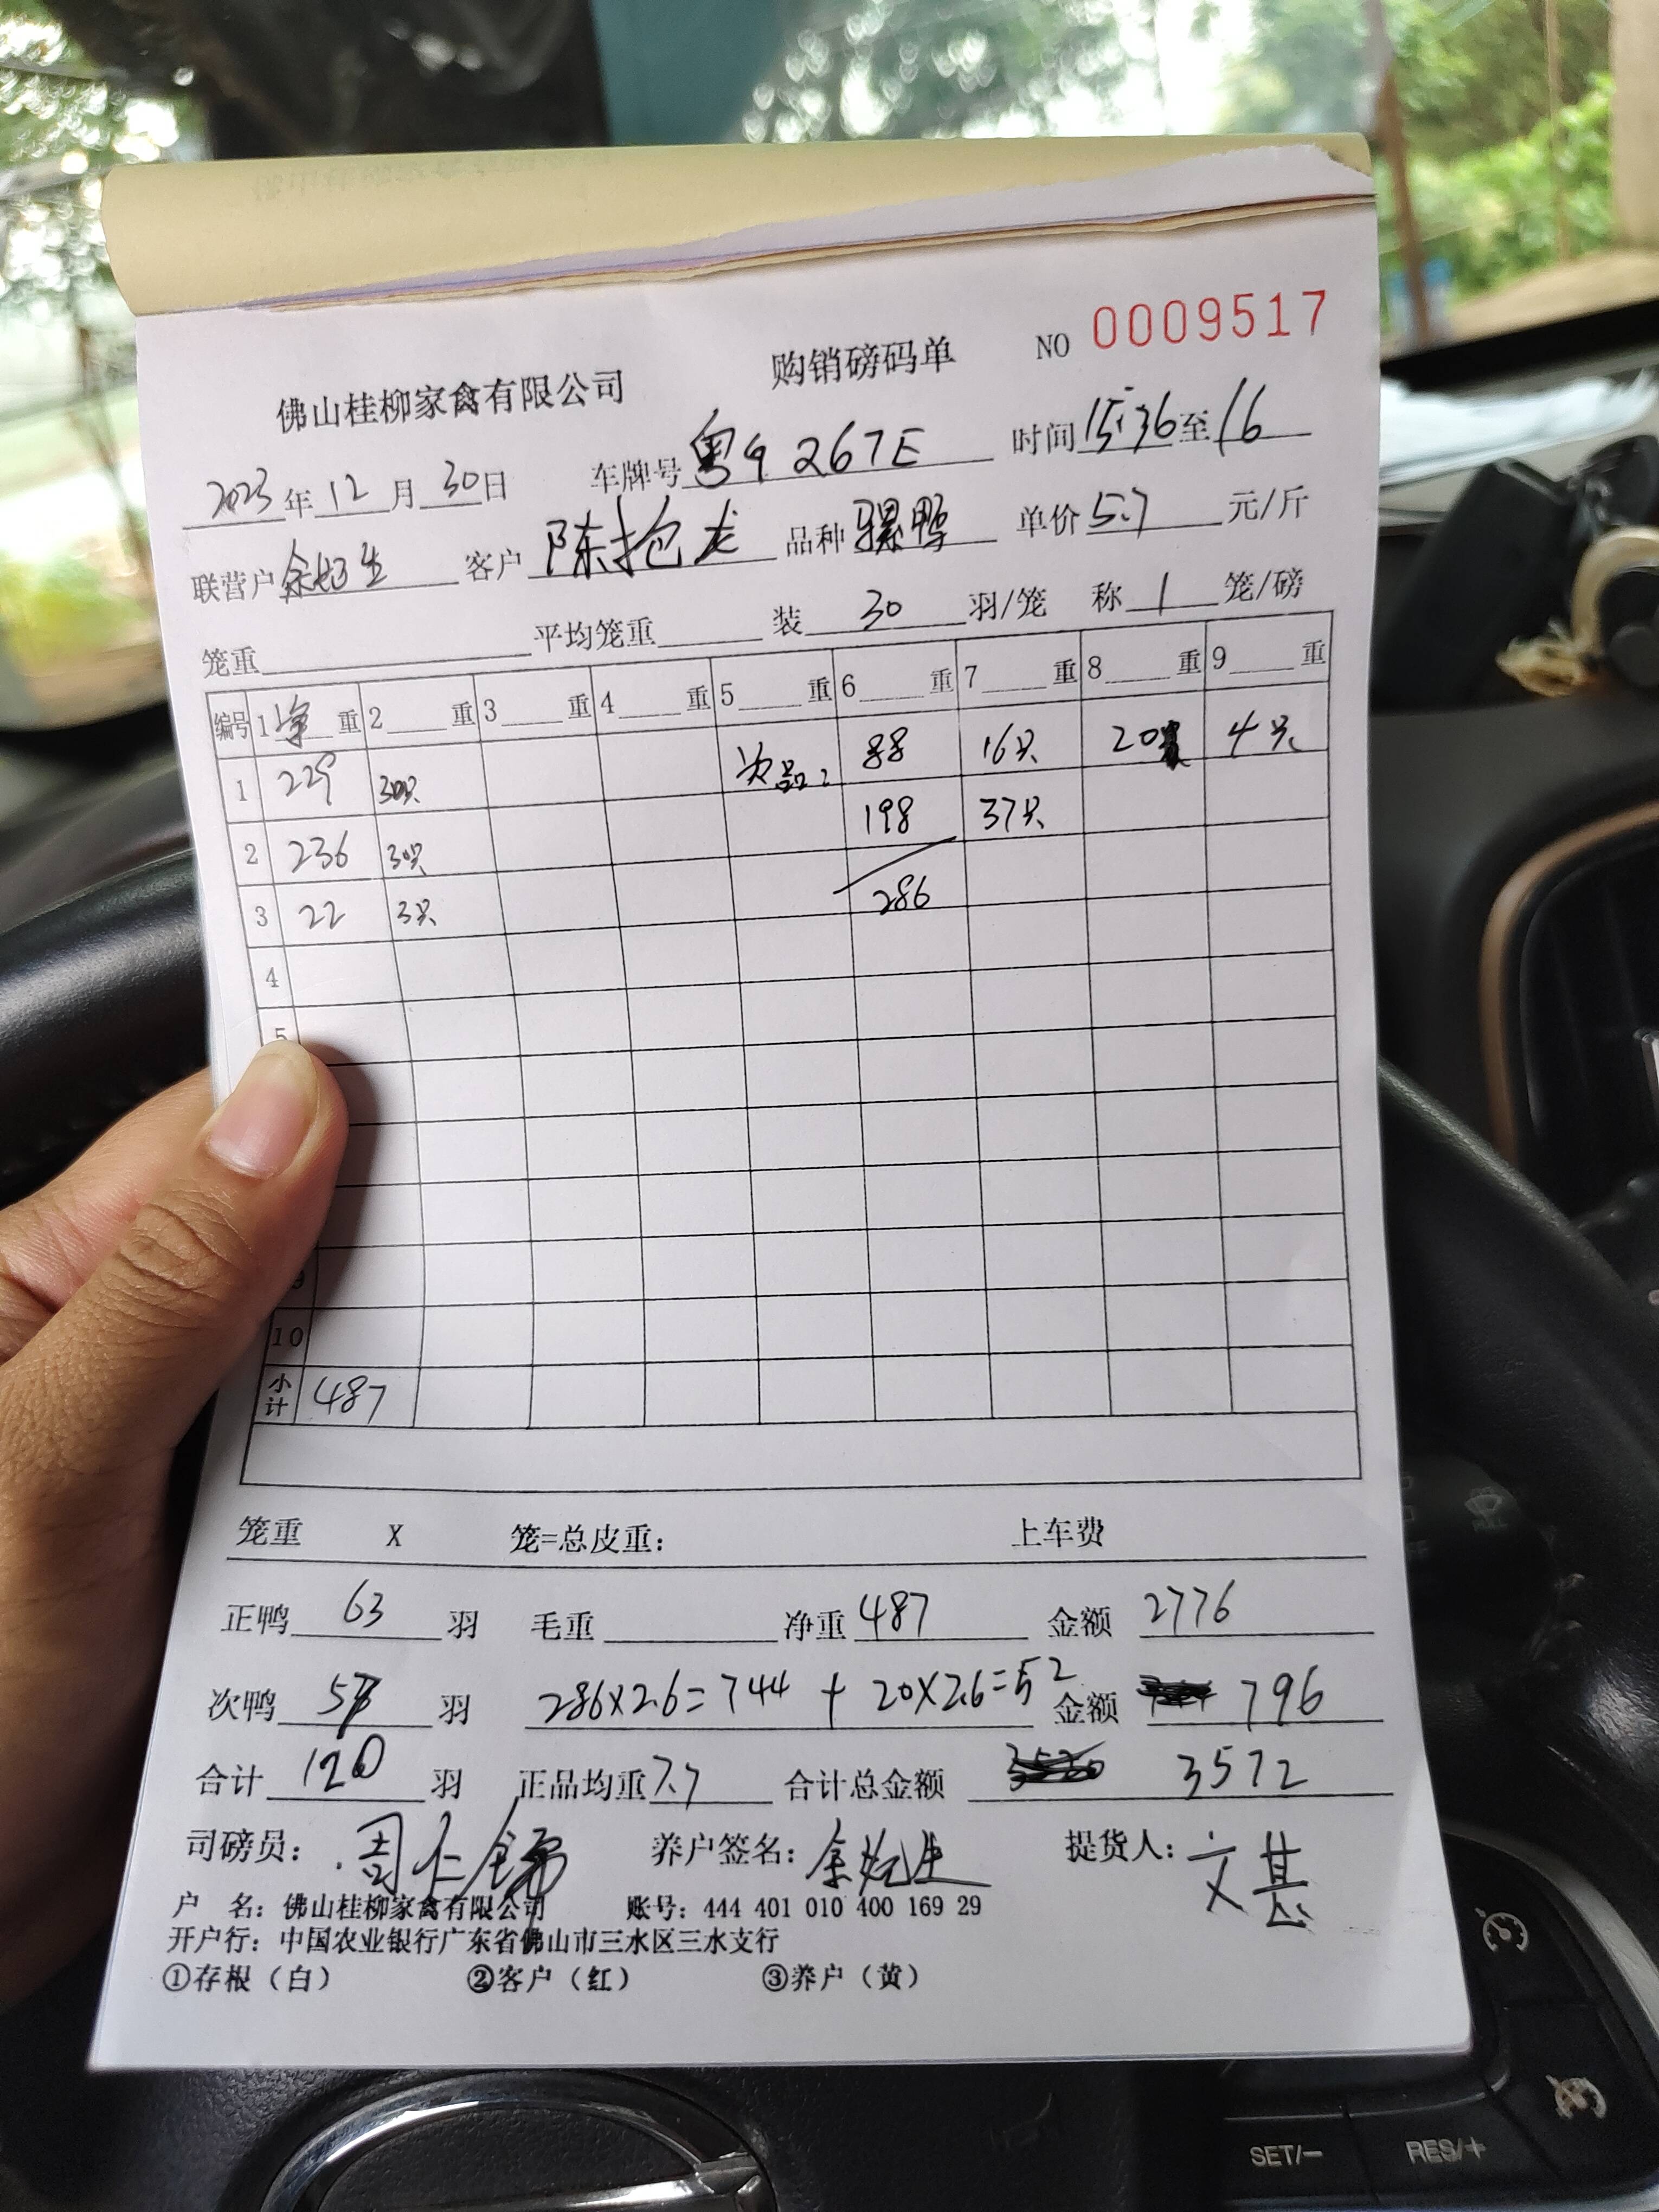 佛山桂柳家禽有限公司 购销磅码单 NO 0009517
2023年12月30日 车牌号 粤 267E 时间15:36至16
联营户 余 生 客户 陈抢龙 品种 骡鸭 单价5.7 元/斤
笼重 平均笼重 装 30 羽/笼 称 1 笼/磅
编号 1净重 2 重 3 重 4 重 5 重 6 重 7 重 8 重 9 重
1 229 30只 次品: 88 16只 20 4只
2 236 30只 198 37只
3 22 3只 286
4
5
9
10
小计 487
笼重 X 笼=总皮重: 上车费
正鸭 63 羽 毛重 净重 487 金额 2776
次鸭 57 羽 286×2.6=744 + 20×2.6=52 金额 796
合计 120 羽 正品均重 7.7 合计总金额 3572
司磅员: 周仁锦 养户签名: 余 生 提货人: 文基
户 名: 佛山桂柳家禽有限公司 账号: 444 401 010 400 169 29
开户行: 中国农业银行广东省佛山市三水区三水支行
①存根(白) ②客户(红) ③养户(黄)
SET/− RES/+